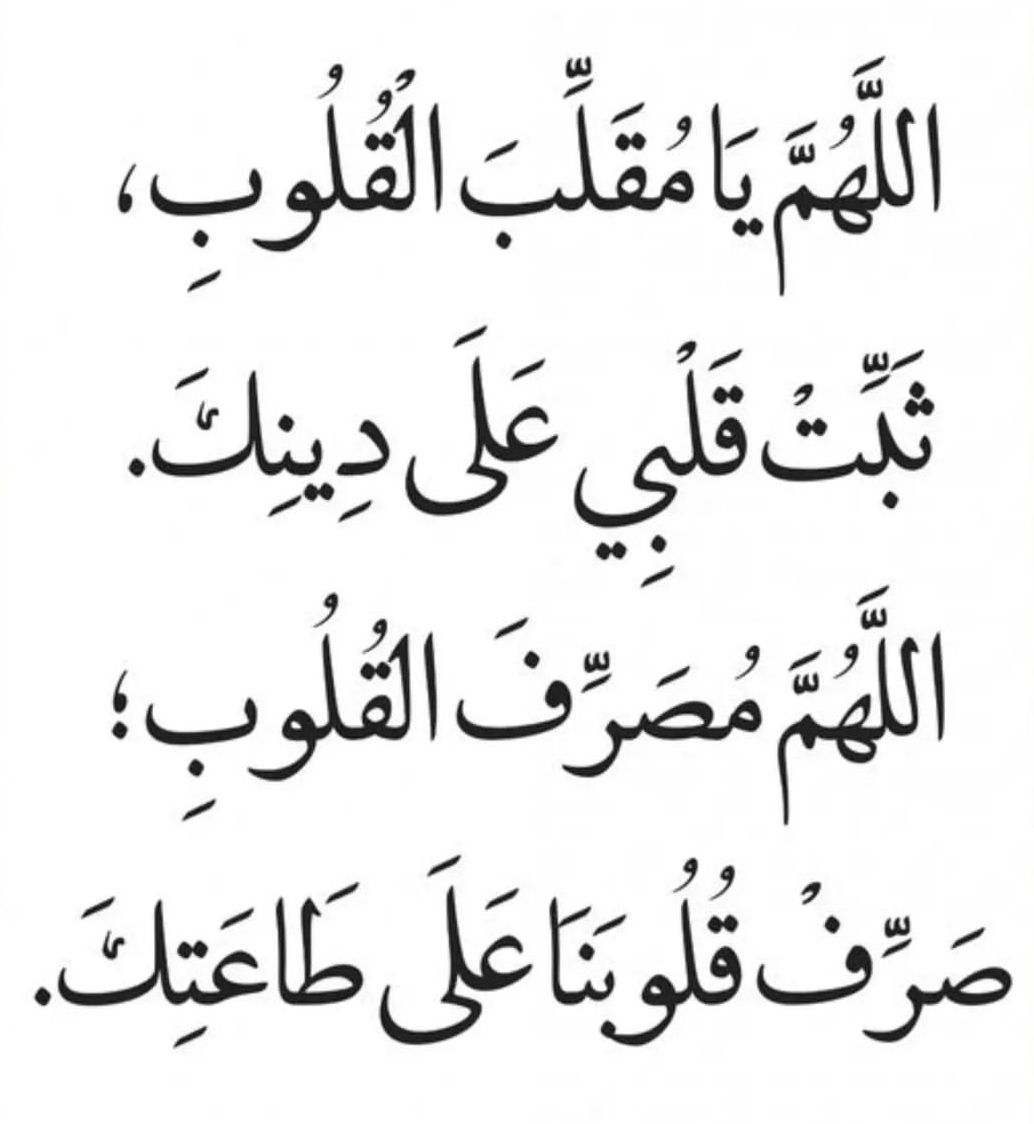 اللَّهُمَّ يَا مُقَلِّبَ الْقُلُوبِ،
ثَبِّتْ قَلْبِي عَلَى دِينِكَ.
اللَّهُمَّ مُصَرِّفَ القُلُوبِ؛
صَرِّفْ قُلُوبَنَا عَلَى طَاعَتِكَ.